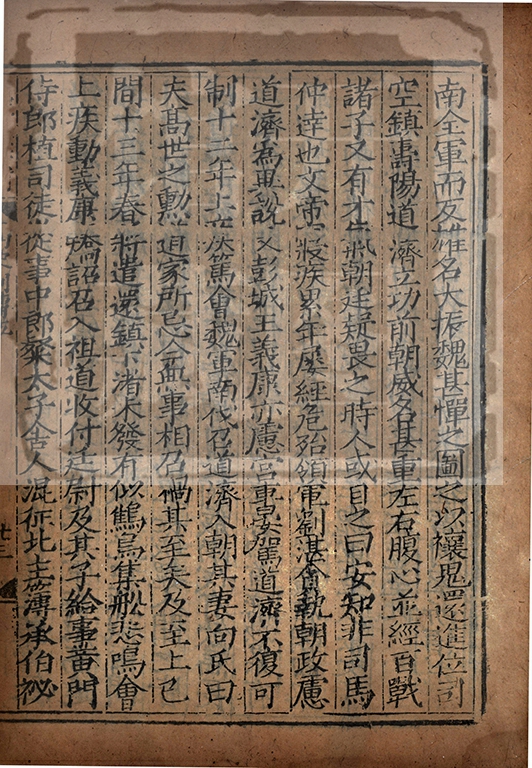 南全軍而反雄名大振魏甚憚之圖之以禳鬼還進位司
空鎮壽陽道濟立功前朝威名甚重左右腹心並經百戰
諸子又有才氣朝廷疑畏之時人或目之曰安知非司馬
仲達也文帝寢疾累年屢經危殆領軍劉湛貪執朝政慮
道濟為異說又彭城王義康亦慮宮車晏駕道濟不復可
制十二年上疾篤會魏軍南伐召道濟入朝其妻向氏曰
夫高世之勲道家所忌今無事相召禍其至矣及至上已
間十三年春將遣還鎮下渚未發有似鷦鳥集舩悲鳴會
上疾動義康矯詔召入祖道收付廷尉及其子給事黃門
侍郎植司徒從事中郎粲太子舍人混征北主簿承伯祕
十三